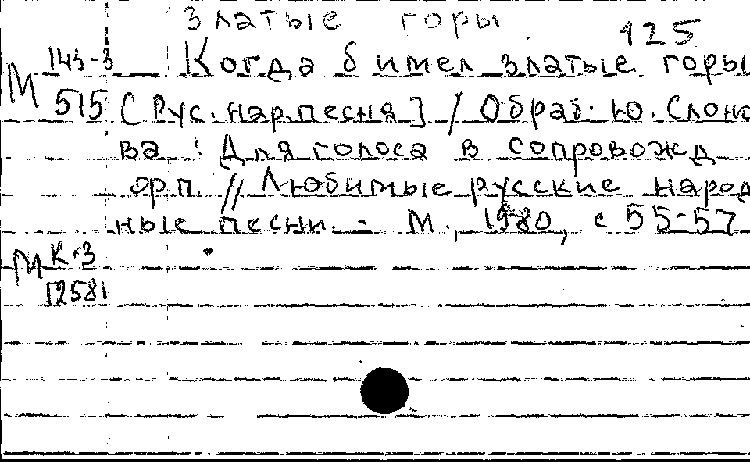 Златые горы
125
М 143-3 Когда б имел златые горы
515 [Рус. нар. песня] / Обраб. Ю. Слоно
ва : Для голоса в сопровожд
ф.п. // Любимые русские народ
ные песни. - М., 1980, с 55-57
М К-3
12581